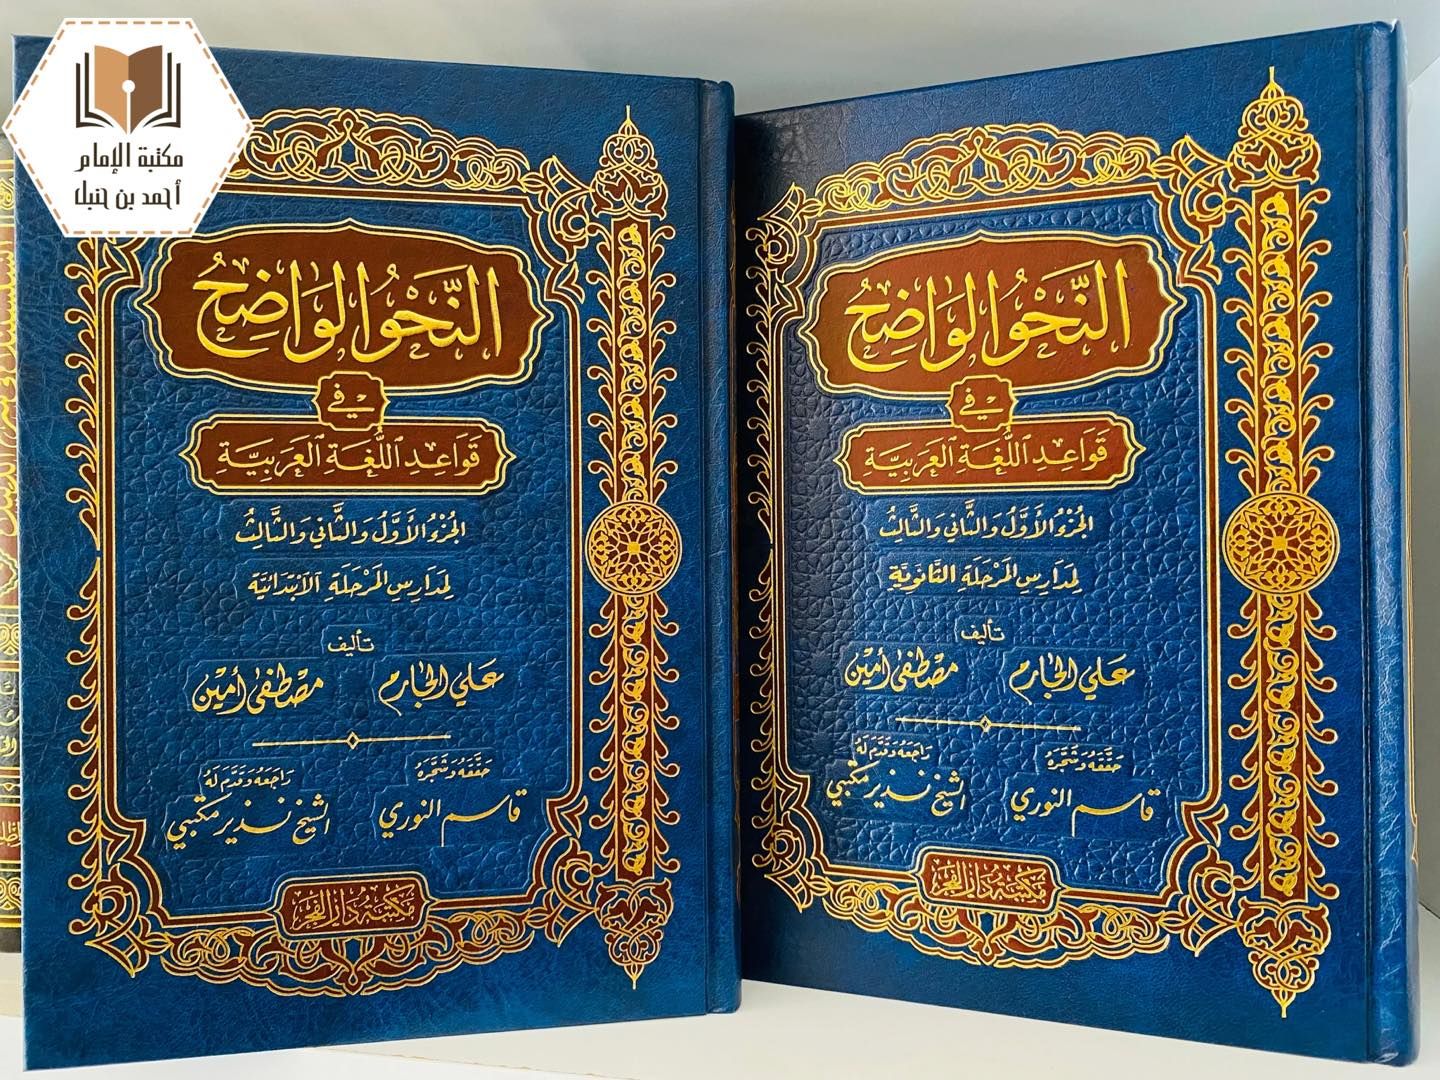 مكتبة الإمام
أحمد بن حنبل
النَّحْوُ الوَاضِحُ
في
قَوَاعِدِ اللُّغَةِ العَرَبِيَّةِ
الجُزْءُ الأَوَّلُ وَالثَّانِي وَالثَّالِثُ
لِمَدَارِسِ المَرْحَلَةِ الابْتِدَائِيَّة
تأليف
علي الجارم مصطفى أمين
حَقَّقَهُ وَشَجَّرَهُ رَاجَعَهُ وَقَدَّمَ لَهُ
قاسم النوري الشيخ نذير مكتبي
مكتبة دار الفجر
النَّحْوُ الوَاضِحُ
في
قَوَاعِدِ اللُّغَةِ العَرَبِيَّةِ
الجُزْءُ الأَوَّلُ وَالثَّانِي وَالثَّالِثُ
لِمَدَارِسِ المَرْحَلَةِ الثَّانَوِيَّة
تأليف
علي الجارم مصطفى أمين
حَقَّقَهُ وَشَجَّرَهُ رَاجَعَهُ وَقَدَّمَ لَهُ
قاسم النوري الشيخ نذير مكتبي
مكتبة دار الفجر